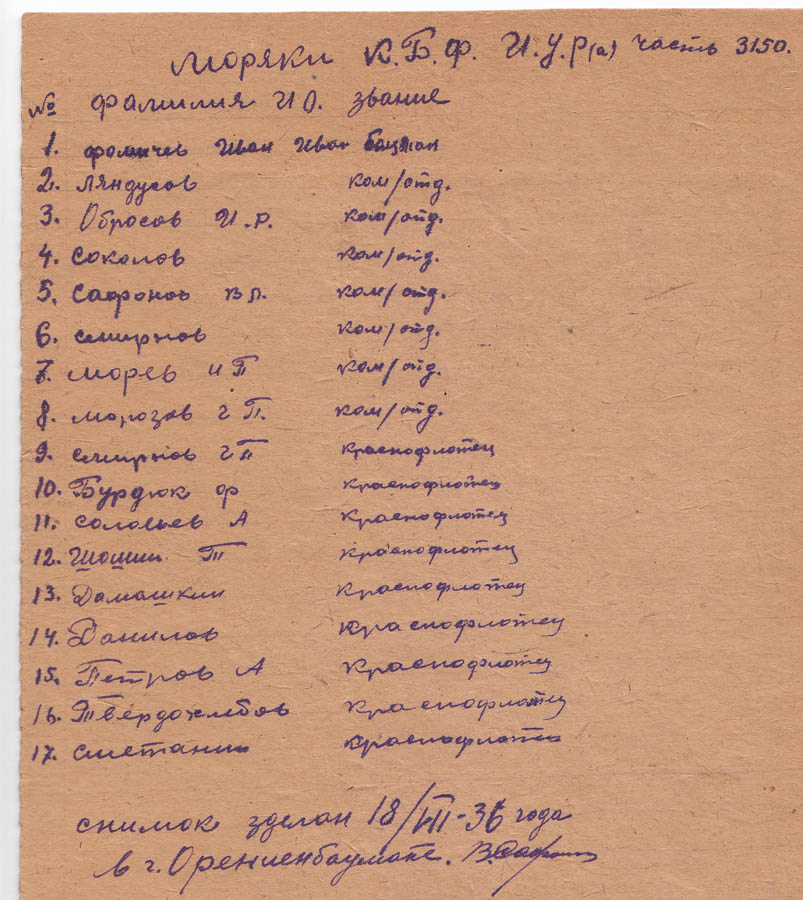 моряки К.Б.Ф. И.У.Р(а) часть 3150.
№ фамилия И О. звание
1. фомичев Иван Иван боцман
2. Ляндусов ком/отд.
3. Обросов И.Р. ком/отд.
4. Соколов ком/отд.
5. Сафонов В П. ком/отд.
6. Смирнов ком/отд.
7. Морев и П ком/отд.
8. Морозов г П. ком/отд.
9. Смирнов г П краснофлотец
10. Бурдюк ф краснофлотец
11. Соловьев А краснофлотец
12. Шошин П краснофлотец
13. Дамашкин краснофлотец
14. Данилов краснофлотец
15. Петров А краснофлотец
16. Твердохлебов краснофлотец
17. Сметанин краснофлотец
снимок зделан 18/VIII-36 года
в г. В.Сафонов